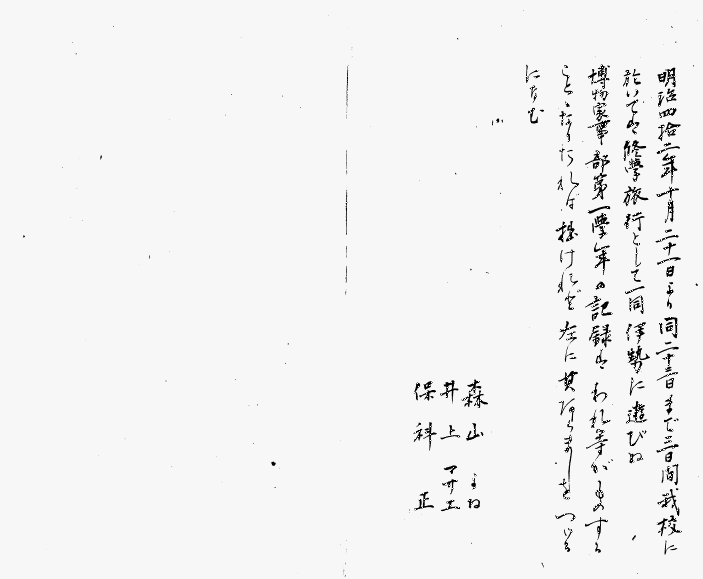 明治四拾二年十月二十一日より同二十三日まで三日間我校に
於いては修學旅行として一同伊勢に遊びぬ
博物家事部第一學年の記録はわれ等がものする
ことゝなりたれば拙けれど左に其あらましをつゞる
になむ
森山 よね
井上 マサエ
保科 正